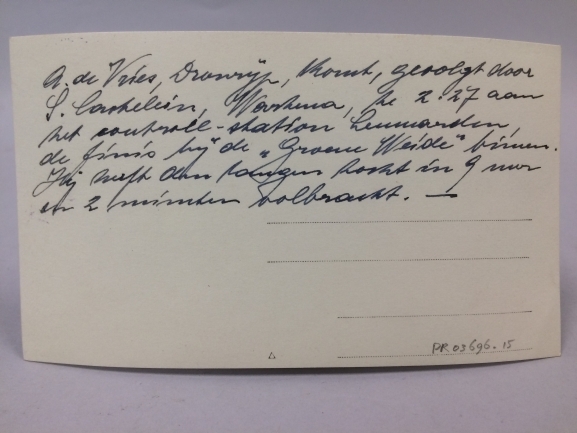 A. de Vries, Dronrijp, komt, gevolgt door
S. Castelein, Wartena, te 2.27 aan
het controll-station Leeuwarden,
de finis bij de „Groene Weide" binnen.
Hij heeft den langen tocht in 9 uur
en 2 minuten volbracht. —
PR 03696.15